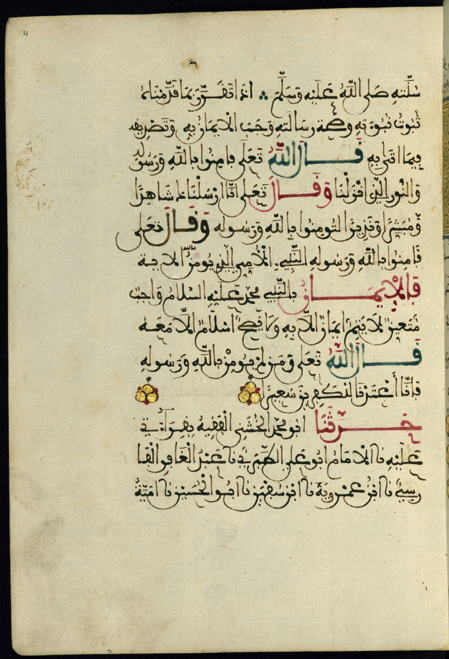 سنته صلى الله عليه وسلم اذا تقرر بما قدمناه
ثبوت نبوته وصحة رسالته وجب الايمان به وتصديقه
فيما اتى به قال الله تعلى فامنوا بالله ورسوله
والنور الذي انزلنا وقال تعلى انا ارسلناك شاهدا
ومبشرا ونذيرا لتومنوا بالله ورسوله وقال تعلى
فامنوا بالله ورسوله النبيء الامي الذي يومن الاية
فالايمان بالنبيء محمد عليه السلام واجب
متعين لا يتم ايمان الا به ولا يصح اسلام الا معه
قال الله تعلى ومن لم يومن بالله ورسوله
فإنا أعتدنا للكفرين سعيرا
حدثنا ابو محمد الخشني الفقيه بقراءتي
عليه نا الامام ابو علي الطبري نا عبد الغافر الفا
رسي نا ابن عمروية نا ابن سفين نا ابو الحسين نا امية